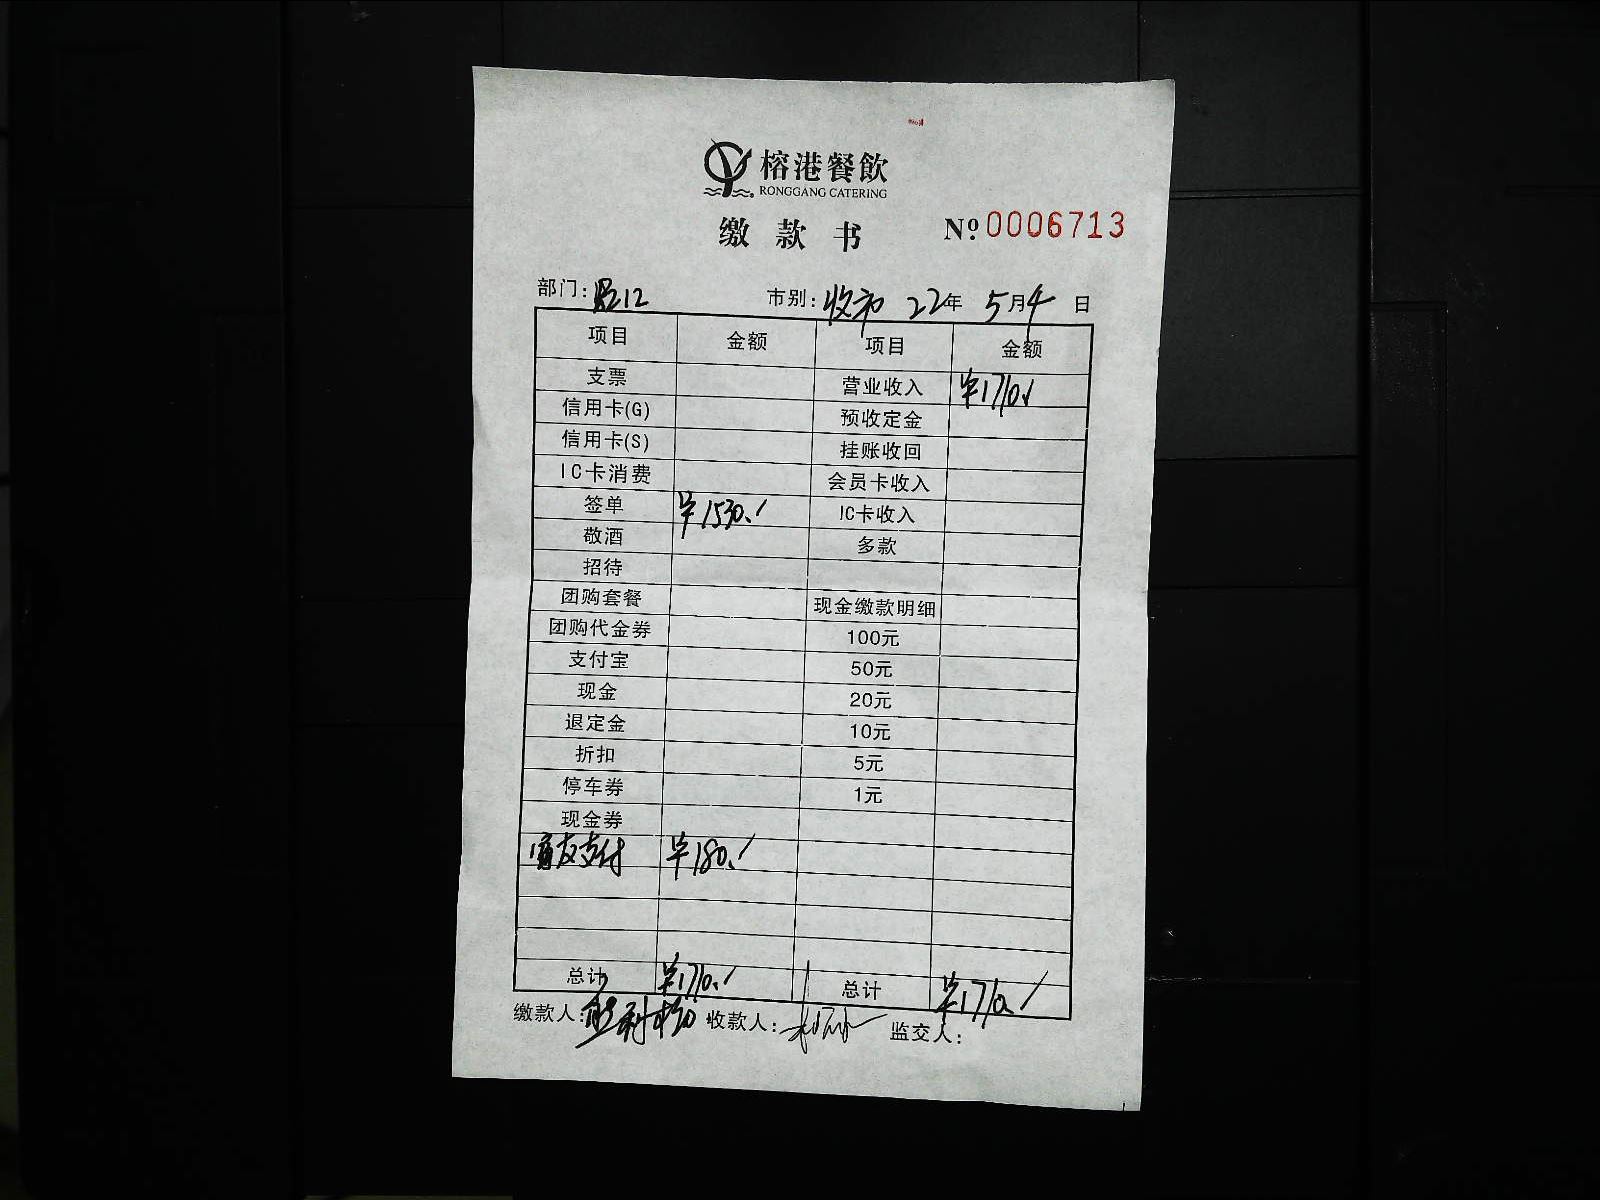 榕港餐飲
RONGGANG CATERING
缴款书 Nº 0006713
部门: 市别: 收市 22年 5月4日
项目 金额 项目 金额
支票 营业收入 ¥1710./
信用卡(G) 预收定金
信用卡(S) 挂账收回
IC卡消费 会员卡收入
签单 ¥1530./ IC卡收入
敬酒 多款
招待
团购套餐 现金缴款明细
团购代金券 100元
支付宝 50元
现金 20元
退定金 10元
折扣 5元
停车券 1元
现金券
支付 ¥180./
总计 ¥1710./ 总计 ¥1710./
缴款人: 收款人: 监交人: